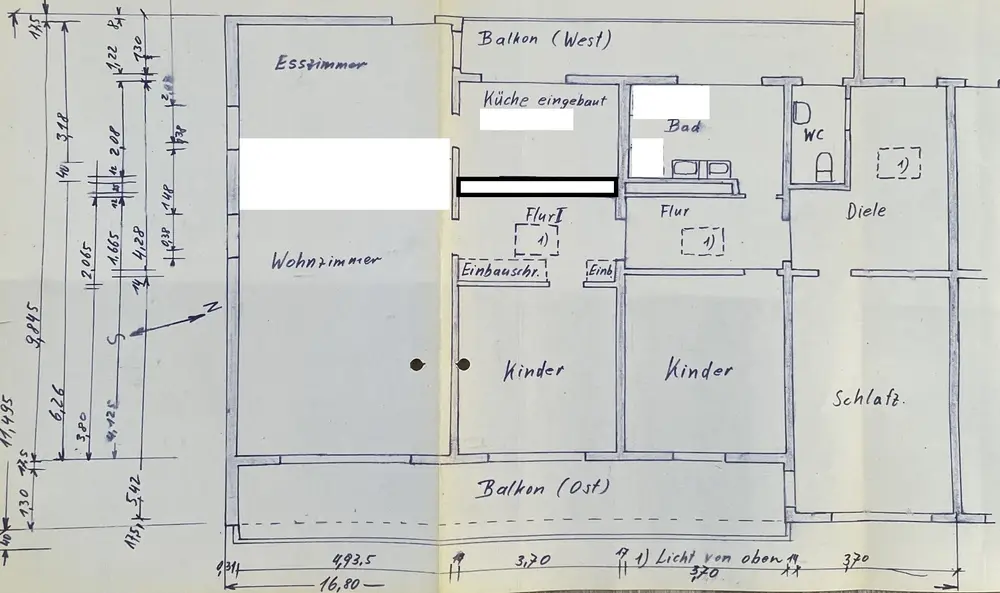 Balkon (West)
Esszimmer
Küche eingebaut
Bad
WC
1)
Diele
Flur II
1)
Flur
1)
Einbauschr.
Einb.
Wohnzimmer
Kinder
Kinder
Schlafz.
Balkon (Ost)
N
S
17,5
8
1,22
1,30
3,18
2,08
40
1,48
38
0,38
12
12
1,665
2,065
4,28
14
9,845
11,495
6,26
3,80
4,125
17,5
1,30
5,42
17,5
40
0,31
4,93,5
3,70
17
1) Licht von oben
3,70
14
3,70
16,80